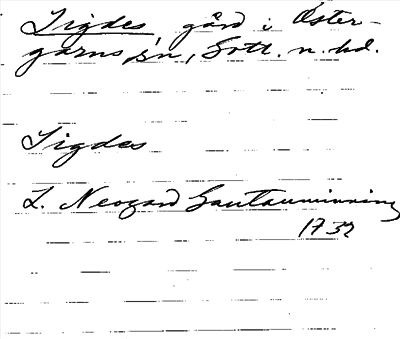 Sigdes, gård i Öster-
garns sn, Gotl. n. hd.
Sigdes
L. Neogard Gautauminning
1732